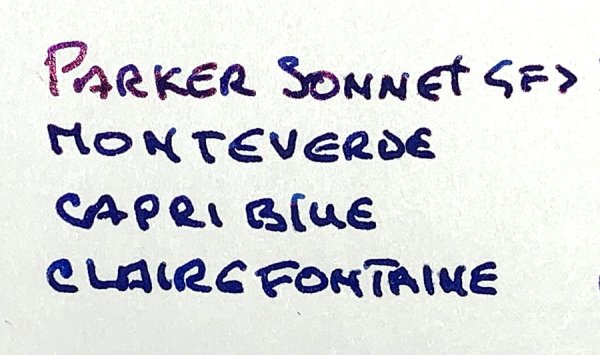 PARKER SONNET <F>
MONTEVERDE
CAPRI BLUE
CLAIREFONTAINE